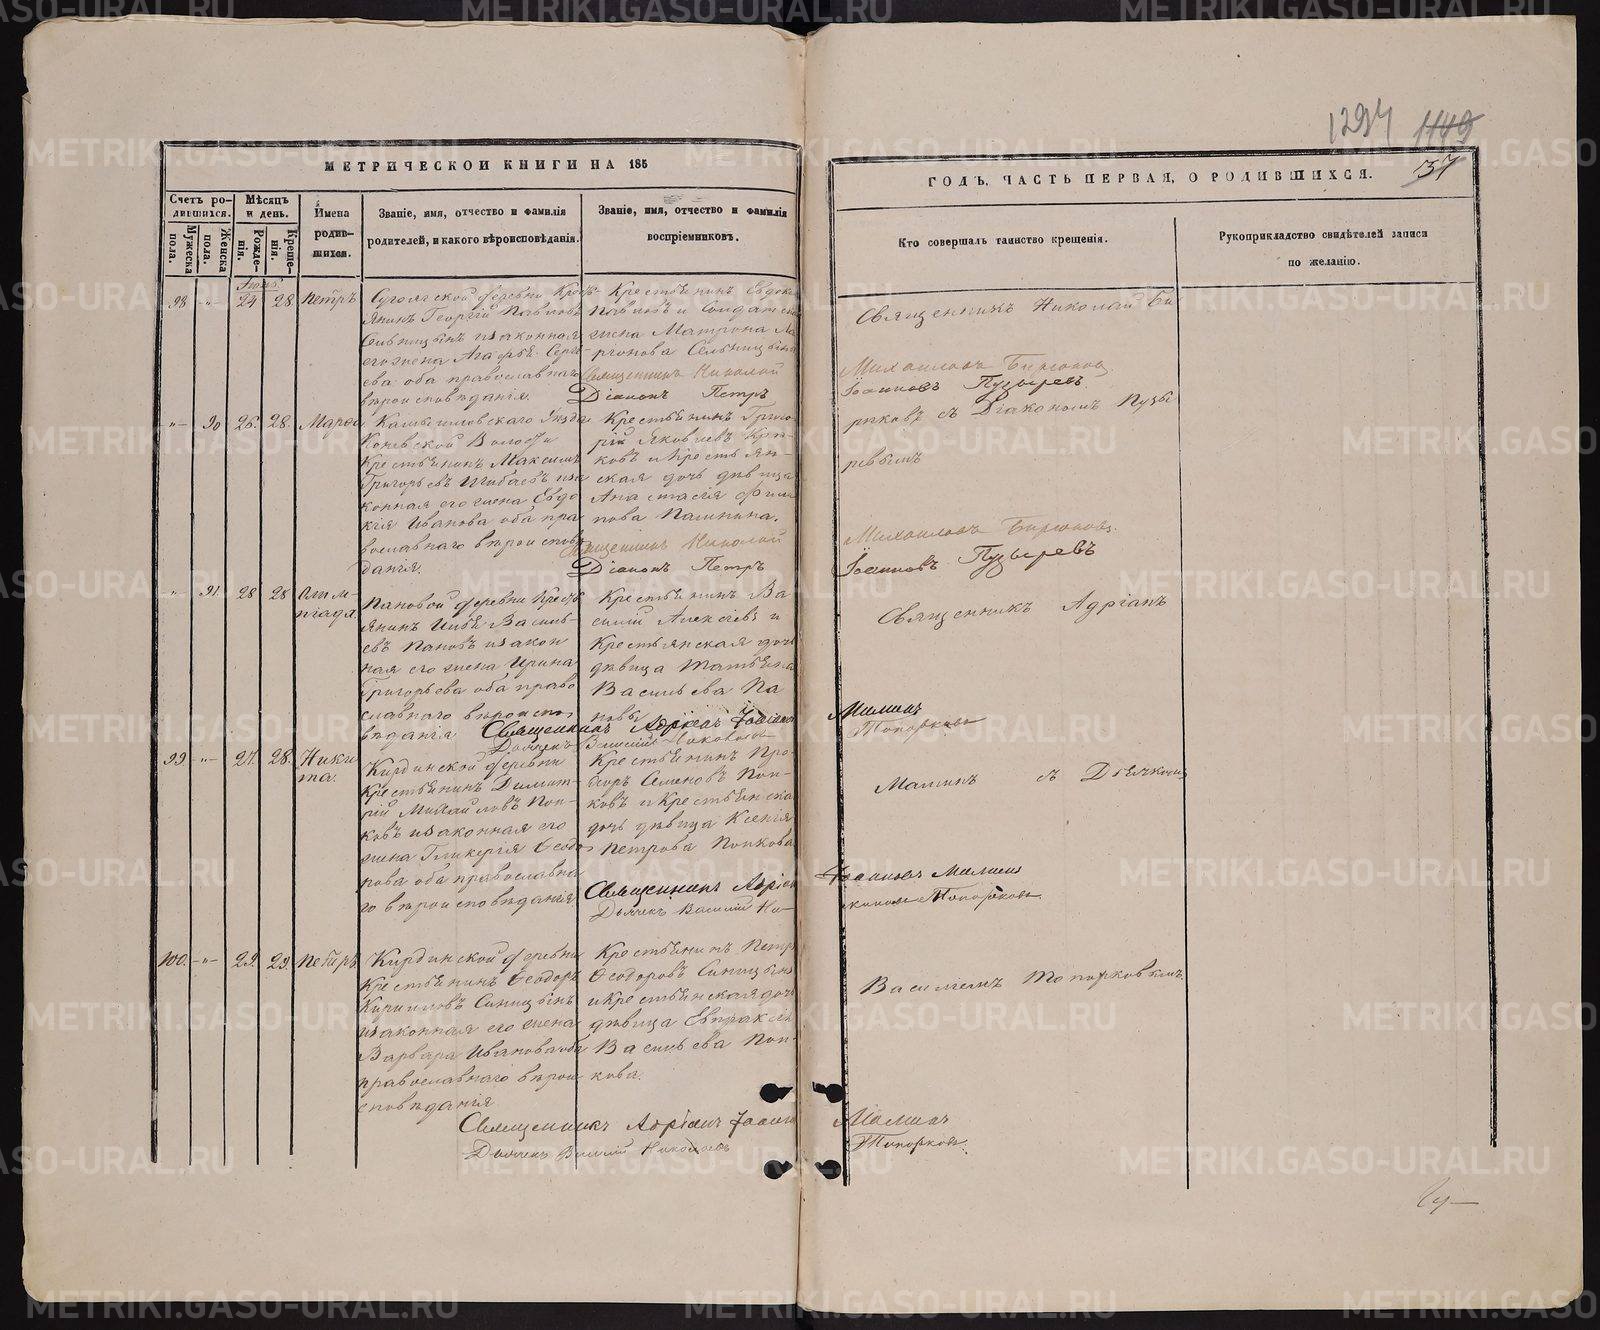 1294 1149
37
МЕТРИЧЕСКОЙ КНИГИ НА 185
ГОДЪ, ЧАСТЬ ПЕРВАЯ, О РОДИВШИХСЯ.
Счетъ родившихся.
Мужеска пола.
Женска пола.
Мѣсяцъ и день.
Рожденія.
Крещенія.
Имена родившихся.
Званіе, имя, отчество и фамилія
родителей, и какого вѣроисповѣданія.
Званіе, имя, отчество и фамилія
воспріемниковъ.
Кто совершалъ таинство крещенія.
Рукоприкладство свидѣтелей записи
по желанію.
98 -„- 24 28 Петръ
деревни Крестъ-
янинъ Георгій Павловъ
Сельницынъ и законная
его жена Агафья Серге-
ева оба православнаго
вѣроисповѣданія.
Крестьянинъ Евдоким
Павловъ и Солдатская
жена Матрона Ла-
ріонова Сельницына
Священникъ Николай Би
Священникъ Николай Михайловъ Бирюковъ
Діаконъ Петръ Іоанновъ Пузыревъ
-„- 90 26. 28.
Камышловскаго Уѣзда
Волости
Крестьянинъ Максимъ
Григорьевъ и за
конная его жена Евдо
кія Иванова оба пра
вославнаго вѣроисповѣ
данія.
Крестьянинъ Григо
рій Яковлевъ
ковъ и Крестьян-
ская дочь дѣвица
Анастасія Фили
пова Пашнина.
рюковъ съ Діакономъ Пузы
ревымъ
Священникъ Николай Михайловъ Бирюковъ.
Діаконъ Петръ Іоанновъ Пузыревъ
„ 91. 28 28 Олим-
піада.
Пановой деревни Кресть
янинъ Василь-
евъ Пановъ и закон
ная его жена Ирина
Григорьева оба право
славнаго вѣроиспо
вѣданія
Крестьянинъ Ва
силій Алексѣевъ и
Крестьянская дочь
дѣвица Татьяна
Васильева Па
нова
Священникъ Адріанъ
Священникъ Адріанъ Іоанновъ Малинъ
Дьячекъ Василій Николаевъ Топорковъ
99 -„- 27. 28. Ники
та.
Кирдинской деревни
Крестьянинъ Димит-
рій Михайловъ Поп-
ковъ и законная его
жена Гликерія Ѳеодо
рова оба православна
го вѣроисповѣданія
Крестьянинъ Про-
хоръ Семеновъ Поп-
ковъ и Крестьянска
дочь дѣвица Ксенія
Петрова Попкова
Малинъ съ Дьячкомъ
Священникъ Адріанъ Іоанновъ Малинъ
Дьячекъ Василій Николаевъ Топорковъ.
100. -„- 29. 29. Петръ
Кирдинской деревни
Крестьянинъ Ѳеодоръ
Кириловъ Синицынъ
и законная его жена
Варвара Иванова оба
православнаго вѣрои
сповѣданія
Крестьянинъ Петр
Ѳеодоровъ Синицынъ
и Крестьянская дочь
дѣвица Евпраксія
Васильева Поп-
кова.
Василіемъ Топорковымъ.
Священникъ Адріанъ Іоанновъ Малинъ
Дьячекъ Василій Николаевъ Топорковъ.
METRIKI.GASO-URAL.RU